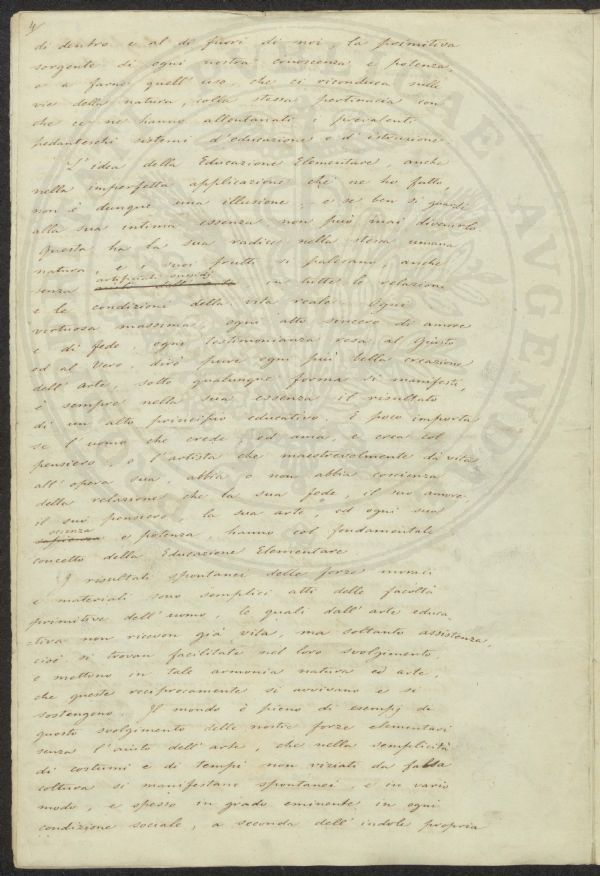 4
di dentro e al di fuori di noi la primitiva
sorgente di ogni nostra conoscenza e potenza,
e a farne quell' uso, che ci riconduca sulle
vie della natura, colla stessa pertinacia con
che ce ne hanno allontanati i prevalenti
pedanteschi sistemi d'educazione e d'istruzione.
L'idea della Educazione Elementare, anche
nella imperfetta applicazione che ne ho fatto,
non è dunque una illusione, e se ben si guardi
alla sua intima essenza non può mai divenirlo.
Questa ha la sua radice nella stessa umana
natura, e i suoi frutti si palesano, anche
artificiali sussidj
senza in tutte le relazioni
e le condizioni della vita reale. Ogni
virtuosa massima, ogni atto sincero di amore
e di fede, ogni testimonianza resa al Giusto
ed al Vero, dirò pure ogni più bella creazione
dell' Arte, sotto qualunque forma si manifesti,
è sempre nella sua essenza il risultato
di un alto principio educativo. E poco importa
se l'uomo che crede ed ama, e crea col
pensiero, o l'artista che maestrevolmente dà vita
all' opera sua, abbia o non abbia coscienza
della relazione che la sua fede, il suo amore,
il suo pensiero, la sua arte, ed ogni sua
scienza
sapienza e potenza, hanno col fondamentale
concetto della Educazione Elementare.
I risultati spontanei delle forze morali
e materiali sono semplici atti delle facoltà
primitive dell' uomo, le quali dall' arte educa-
-tiva non ricevon già vita, ma soltanto assistenza,
cioè si trovan facilitate nel loro svolgimento,
e mettono in tale armonia natura ed arte,
che queste reciprocamente si avvivano e si
sostengono. Il mondo è pieno di esempj di
questo svolgimento delle nostre forze elementari
senza l'aiuto dell' arte, che nella semplicità
di costumi e di tempi non viziati da falsa
coltura si manifestano spontanei, e in vario
modo, e spesso in grado eminente in ogni
condizione sociale, a seconda dell' indole propria